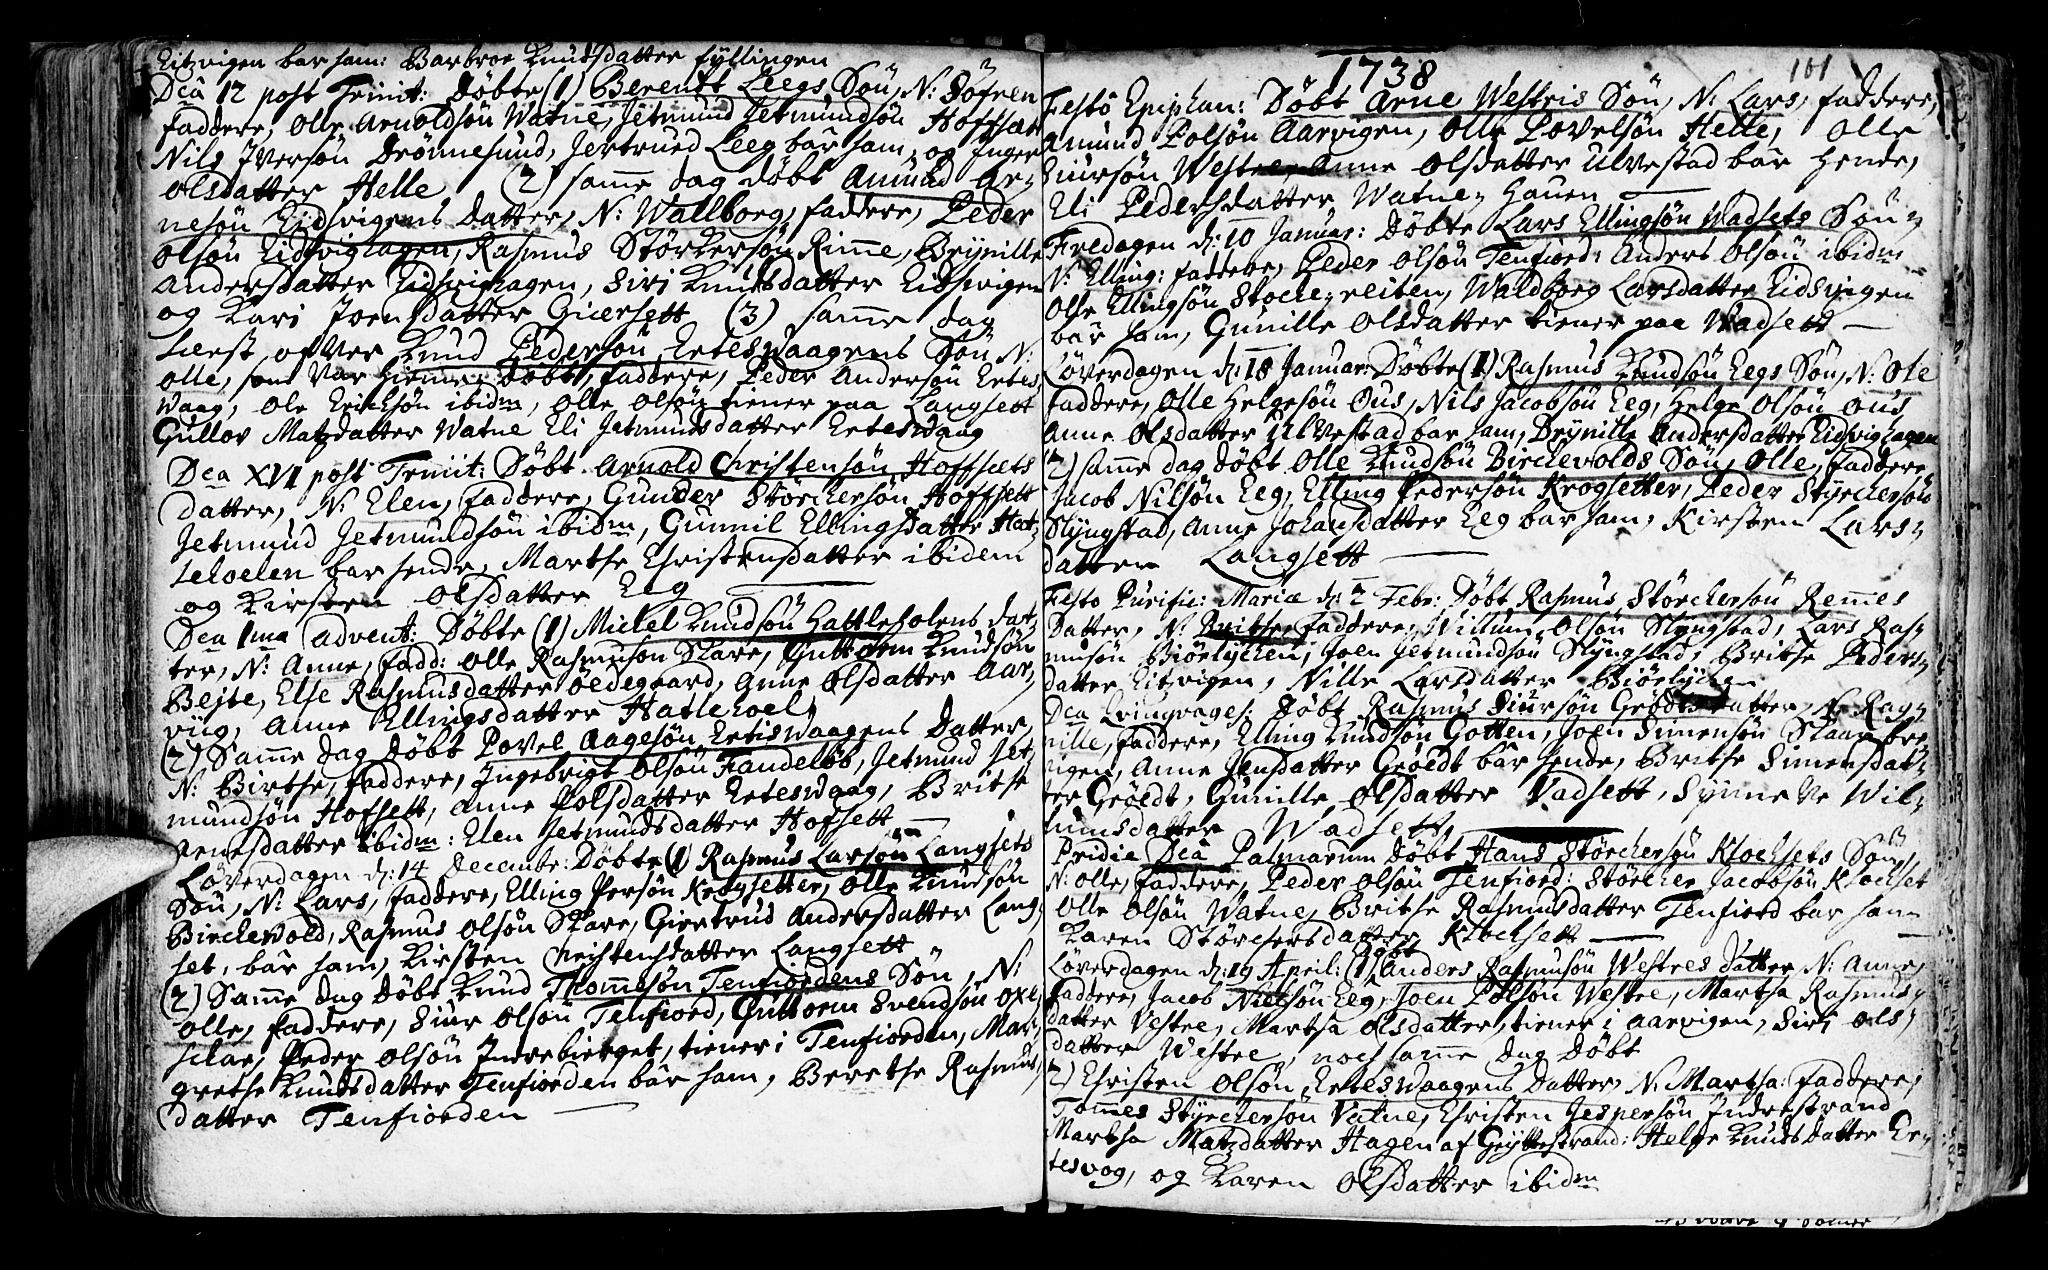 Eitzvigen bar ham: Barbroe Knudsdatter Fyllingen
Dca 12 post Trinit: Döbte (1) Berendt Leegs Sön, N: Döfren
Faddere, Olle Arnoldsön Watne, Jetmund Jetmundsön Hoffsæt
Nils Iversön Drönnesund, Jertrued Leeg bar ham, og Inger
Olsdatter Helle (2) samme dag döbt Amund Ar-
nesön Eidsvigens Datter, N: Wallborg, faddere, Peder
Olsön Eidsvighagen, Rasmus Störkersön Rimme, Brynille
Andersdatter Eidsvighagen, Siri Knudsdatter Eidsvigen
og Kari Joensdatter Giersett (3) samme dag
læst over Knud Pedersön Erteswaagens Sön N:
Olle, som var hieme Döbt, faddere, Peder Andersön Ertes-
waag, Ole Ericksön ibidm, Olle Olsön tiener paa Langsett
Gullov Matzdatter Watne Eli Jetmundsdatter Erteswaag
Dca XVI post Trinit: Döbt Arnold Christensön Hoffsæts
datter, N: Elen, faddere, Gunder Störckersön Hoffsett
Jetmund Jetmundsön ibidm, Gunnil Ellingsdatter Hat-
leloelen bar hende, Marthe Christensdatter ibidem
og Kirsten Olsdatter Eeg
Dca 1ma Advent: Döbte (1) Mickel Knudsön Hattleholens dat-
ter, N: Anne, fadd: Olle Rasmusön Skare, Guttorm Knudsön
Beyte, Else Rasmusdatter Oedegaard, Anne Olsdatter Aar-
viig, Anne Ellingsdatter Hatlehoel
(2) Samme dag Döbt Povel Aagesön Ertiswaagens Datter,
N: Birthe, faddere, Ingebrigt Olsön Fandelöb, Jetmund Jet-
mundsön Hofsett, Anne Polsdatter Erteswaag, Brithe
Arnesdatter ibidm: Elen Jetmundsdatter Hofsett
Löverdagen d: 14 Decembr: Döbte (1) Rasmus Larsön Langsets
Sön, N: Lars, faddere, Elling Persön Krogsetter, Olle Knudsön
Birckevold, Rasmus Olsön Skare, Giertrud Andersdatter Lang-
set, bar ham, Kirsten Christensdatter Langsett
(2) Samme dag Döbt Knud Thomesön Tenfiordens Sön, N:
Olle, faddere, Siur Olsön Tenfiord, Guttorm Svendsön Oxe-
schar, Peder Olsön Indrebierget, tiener i Tenfiorden, Mar-
grethe Knudsdatter Tenfiorden bar ham, Berethe Rasmus-
datter Tenfiorden
1738
101
Festö Epiphan: Döbt Arne Westris Sön, N: Lars, faddere,
Amund Polsön Aarvigen, Olle Povelsön Helle, Olle
Siursön Westre, Anne Olsdatter Ulvestad bar hende,
Eli Pedersdatter Watne-Hauen
Fredagen d: 10 Januar: Döbte Lars Ellingsön Wadsets Sön-
N: Elling: faddere, Peder Olsön Tenfiord: Anders Olsön ibidm
Olle Ellingsön Stocke-reiten, Waldborg Larsdatter Eidsvigen
bar ham, Gunille Olsdatter tiener paa Wadsett
Löverdagen d: 18 Januar: Döbte (1) Rasmus Knudsön Eegs Sön, N: Ole
faddere, Olle Helgesön Ous, Nils Jacobsön Eeg, Helge Olsön Ous
Anne Olsdatter Ulvestad bar ham, Brynille Andersdatter Eidsvighagen
2) samme dag döbt Olle Knudsön Birckevolds Sön, Olle, faddere,
Jacob Nilsön Eeg, Elling Pedersön Krogsetter, Peder Styrckersön
Slyngstad, Anne Johansdatter Eeg bar ham, Kirsten Lars-
datter Langsett
Festo Purific: Mariæ d: 2 Febr: Döbt Rasmus Störckersön Remes
Datter, N: Brithe, faddere, Willum Olsön Slyngstad, Lars Ras-
musön Biörlycken, Joen Jetmundsön Slyngstad, Brithe Peders-
datter Eitvigen, Nille Larsdatter Biörlycken
Dca Qvinqvages: Döbt Rasmus Siursön Gröedts Datter, N: Rag-
nille, faddere, Elling Knudsön Gotten, Joen Simensön Skaarbre
vigen, Anne Jensdatter Gröedt bar hende, Brithe Simensdat-
ter Gröedt, Gunille Olsdatter Vadsett, Synneve Wil-
lumsdatter Wadsett,
Pridie Dcâ Palmarum döbt Hans Störckersön Klocksets Sön
N: Olle, faddere, Peder Olsön Tenfiord: Störcker Jacobsön Klockset
Olle Olsön Watne, Brithe Rasmusdatter Tenfiord bar ham
Karen Störckersdatter Klocksett
Löverdagen d: 19 April: Döbt (1) Anders Rasmusön Westres datter N: Anne,
faddere, Jacob Nielsön Eeg, Joen Polsön Westre, Martha Rasmus-
datter Vestre, Martha Olsdatter, tiener i Aarvigen, Siri Ols-
datter Westre, noch samme dag Döbt
2) Christen Olsön Erteswaagens Datter, N: Martha: faddere,
Tommes Styrckersön Vatne, Christen Jespersön Indrestrand
Martha Matzdatter Hagen af Gryttestrand: Helge Knudsdatter Er-
tesvog, og Karen Olsdatter ibidm